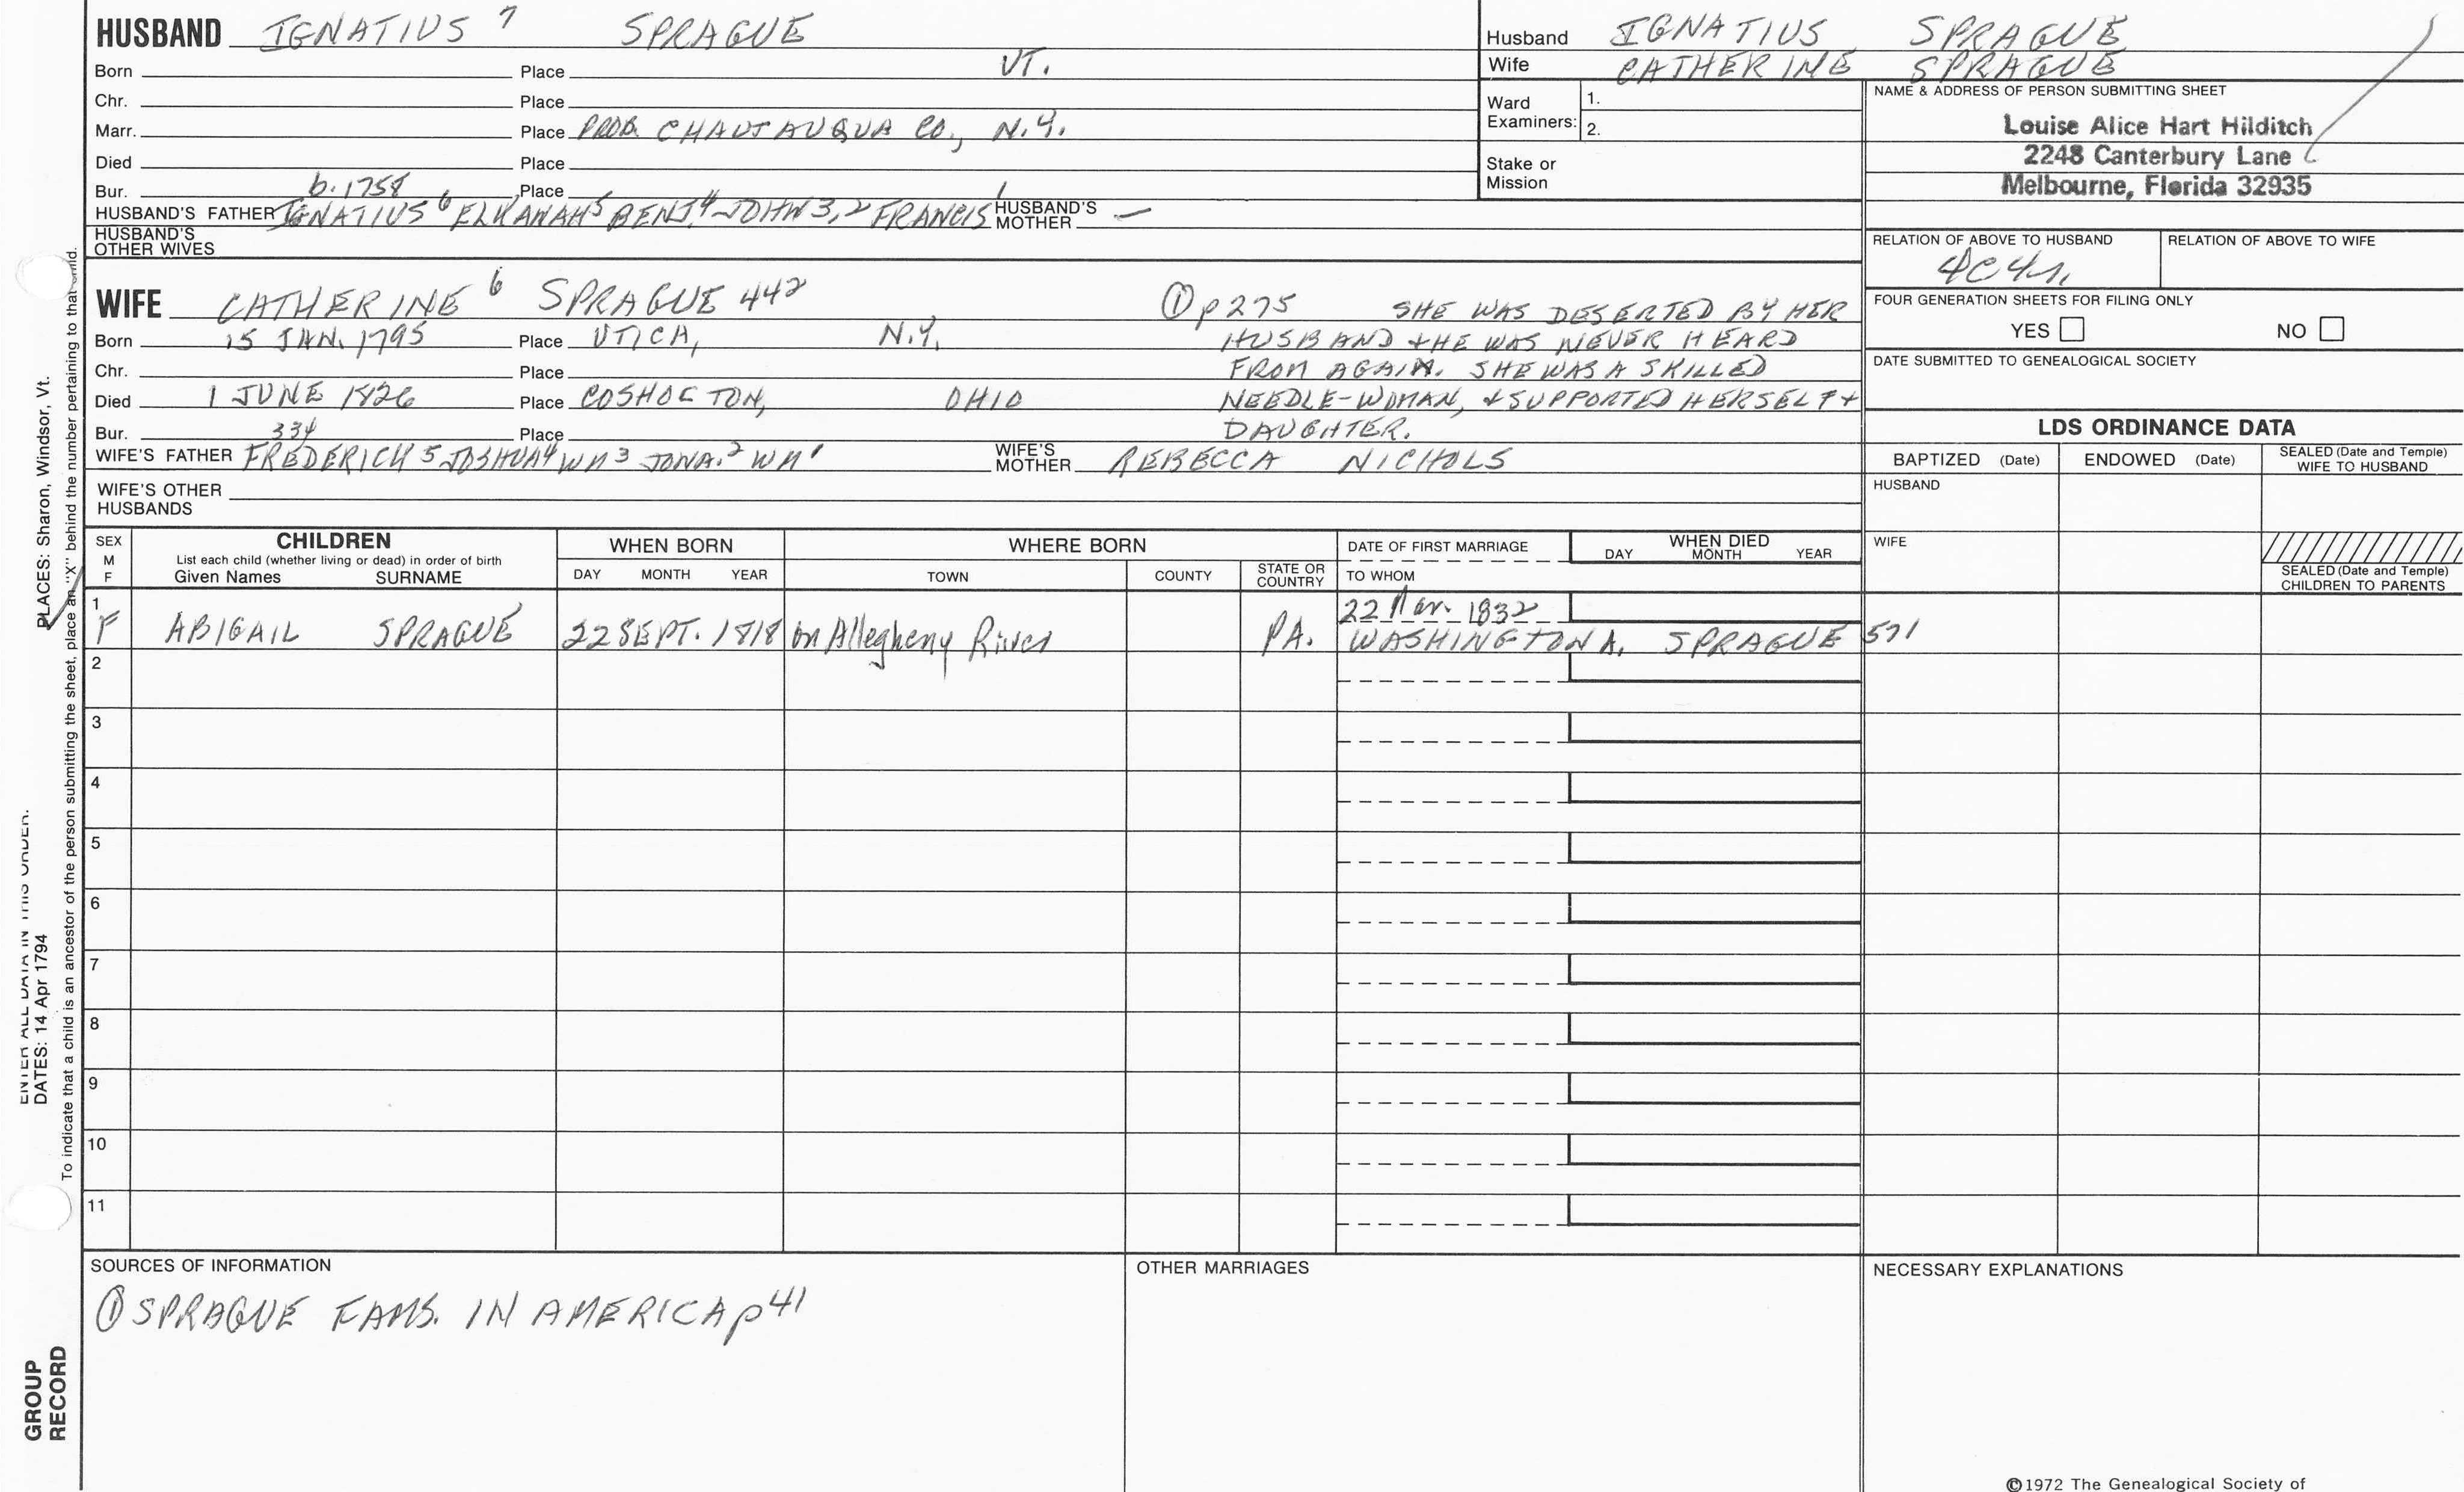 HUSBAND IGNATIUS 7 SPRAGUE
Born Place VT.
Chr. Place
Marr. Place PROB. CHAUTAUQUA CO., N.Y.
Died Place
Bur. Place
b. 1758
HUSBAND'S FATHER IGNATIUS 6 ELKANAH 5 BENJ. 4 JOHN 3, 2 FRANCIS 1 HUSBAND'S MOTHER —
HUSBAND'S OTHER WIVES
Husband IGNATIUS SPRAGUE
Wife CATHERINE SPRAGUE
Ward Examiners: 1.
2.
Stake or Mission
NAME & ADDRESS OF PERSON SUBMITTING SHEET
Louise Alice Hart Hilditch
2248 Canterbury Lane
Melbourne, Florida 32935
RELATION OF ABOVE TO HUSBAND RELATION OF ABOVE TO WIFE
4C4r.
FOUR GENERATION SHEETS FOR FILING ONLY
YES NO
DATE SUBMITTED TO GENEALOGICAL SOCIETY
WIFE CATHERINE 6 SPRAGUE 442
Born 15 JAN. 1795 Place UTICA, N.Y.
Chr. Place
Died 1 JUNE 1826 Place COSHOCTON, OHIO
Bur. Place
334
WIFE'S FATHER FREDERICK 5 JOSHUA 4 WM 3 JONA. 2 WM 1 WIFE'S MOTHER REBECCA NICHOLS
WIFE'S OTHER HUSBANDS
① p275 SHE WAS DESERTED BY HER
HUSBAND & HE WAS NEVER HEARD
FROM AGAIN. SHE WAS A SKILLED
NEEDLE-WOMAN, & SUPPORTED HERSELF &
DAUGHTER.
LDS ORDINANCE DATA
BAPTIZED (Date) ENDOWED (Date) SEALED (Date and Temple) WIFE TO HUSBAND
HUSBAND
WIFE
SEALED (Date and Temple) CHILDREN TO PARENTS
SEX M F
CHILDREN
List each child (whether living or dead) in order of birth
Given Names SURNAME
WHEN BORN
DAY MONTH YEAR
WHERE BORN
TOWN COUNTY STATE OR COUNTRY
DATE OF FIRST MARRIAGE
TO WHOM
WHEN DIED
DAY MONTH YEAR
1 22 Mar. 1832
F ABIGAIL SPRAGUE 22 SEPT. 1818 on Allegheny River PA. WASHINGTON A. SPRAGUE 571
2
3
4
5
6
7
8
9
10
11
SOURCES OF INFORMATION
① SPRAGUE FAMS. IN AMERICA p41
OTHER MARRIAGES
NECESSARY EXPLANATIONS
©1972 The Genealogical Society of
ENTER ALL DATA IN THIS ORDER.
DATES: 14 Apr 1794
PLACES: Sharon, Windsor, Vt.
To indicate that a child is an ancestor of the person submitting the sheet, place an "X" behind the number pertaining to that child.
GROUP
RECORD